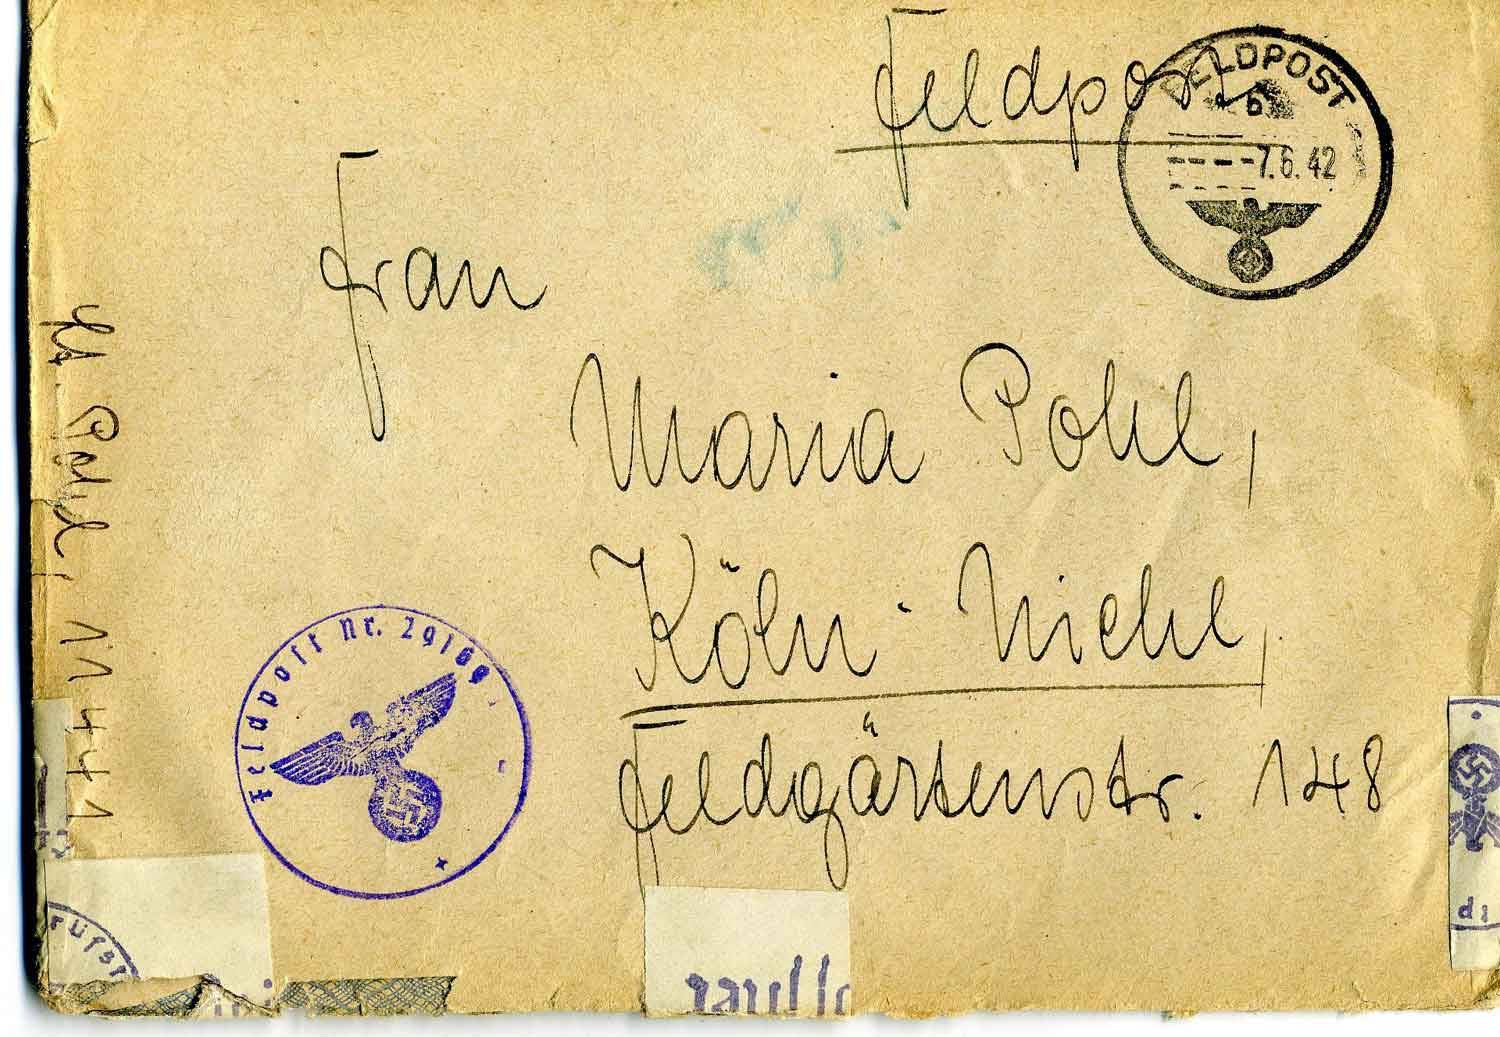 Feldpost
FELDPOST
b
7.6.42
Frau
Maria Pohl,
Köln-Niehl,
Feldgärtenstr. 148
Pohl, 11441
Feldpost Nr. 29169
rüfst